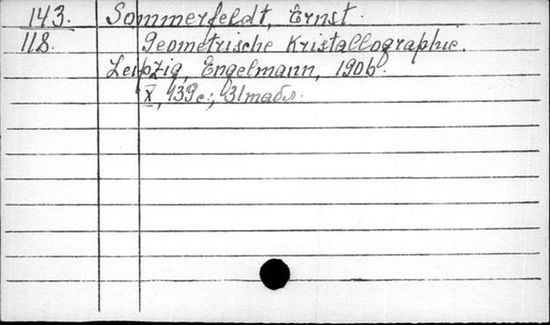 143. Sommerfeldt, Ernst.
118. Geometrische Kristallographie.
Leipzig, Engelmann, 1906.
X, 139 с.; 31 табл.